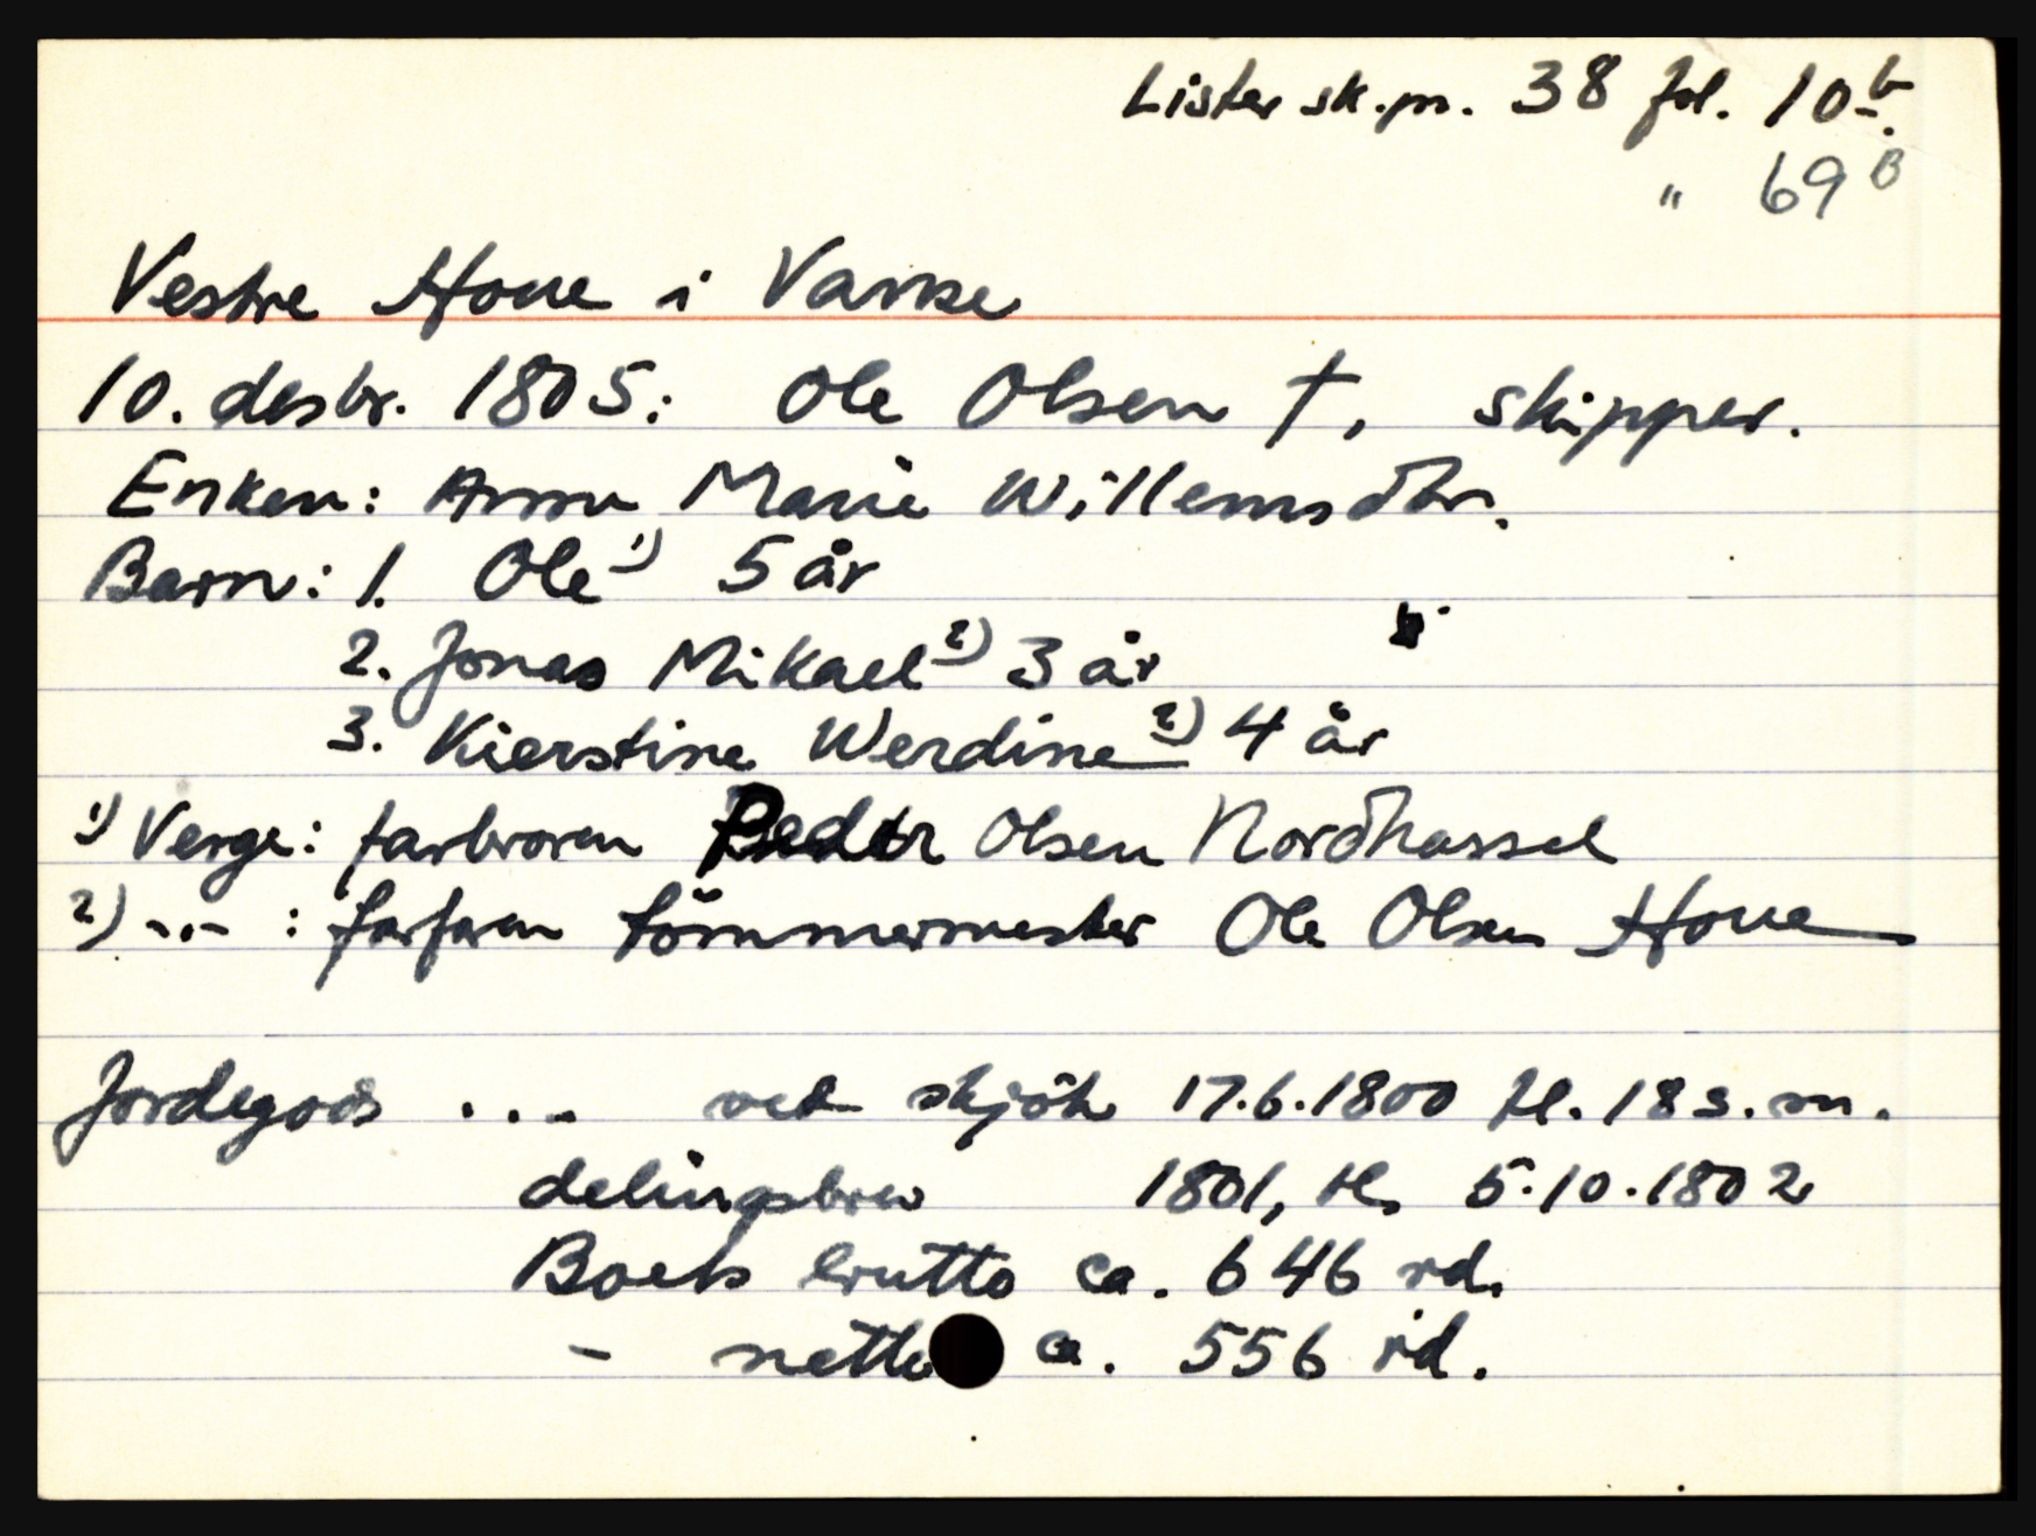 Lister sk.pr. 38 fol. 10b.
" 69B
Vestre Houe i Vanse
10. desbr. 1805: Ole Olsen †, skipper.
Enken: Anna Marie Willemsdtr.
Barn: 1. Ole 1) 5 år
2. Jonas Mikael 2) 3 år
3. Kierstine Werdine 2) 4 år
1) Verge: farbroren Peder Olsen Nordhassel
2) -"- : farfaren tömmermester Ole Olsen Houe
Jordegods ... ved skjöte 17.6.1800 tl. 18 s.m.
delingsbrev 1801, tl. 5.10.1802
Boets brutto ca. 646 rd.
- netto ca. 556 rd.